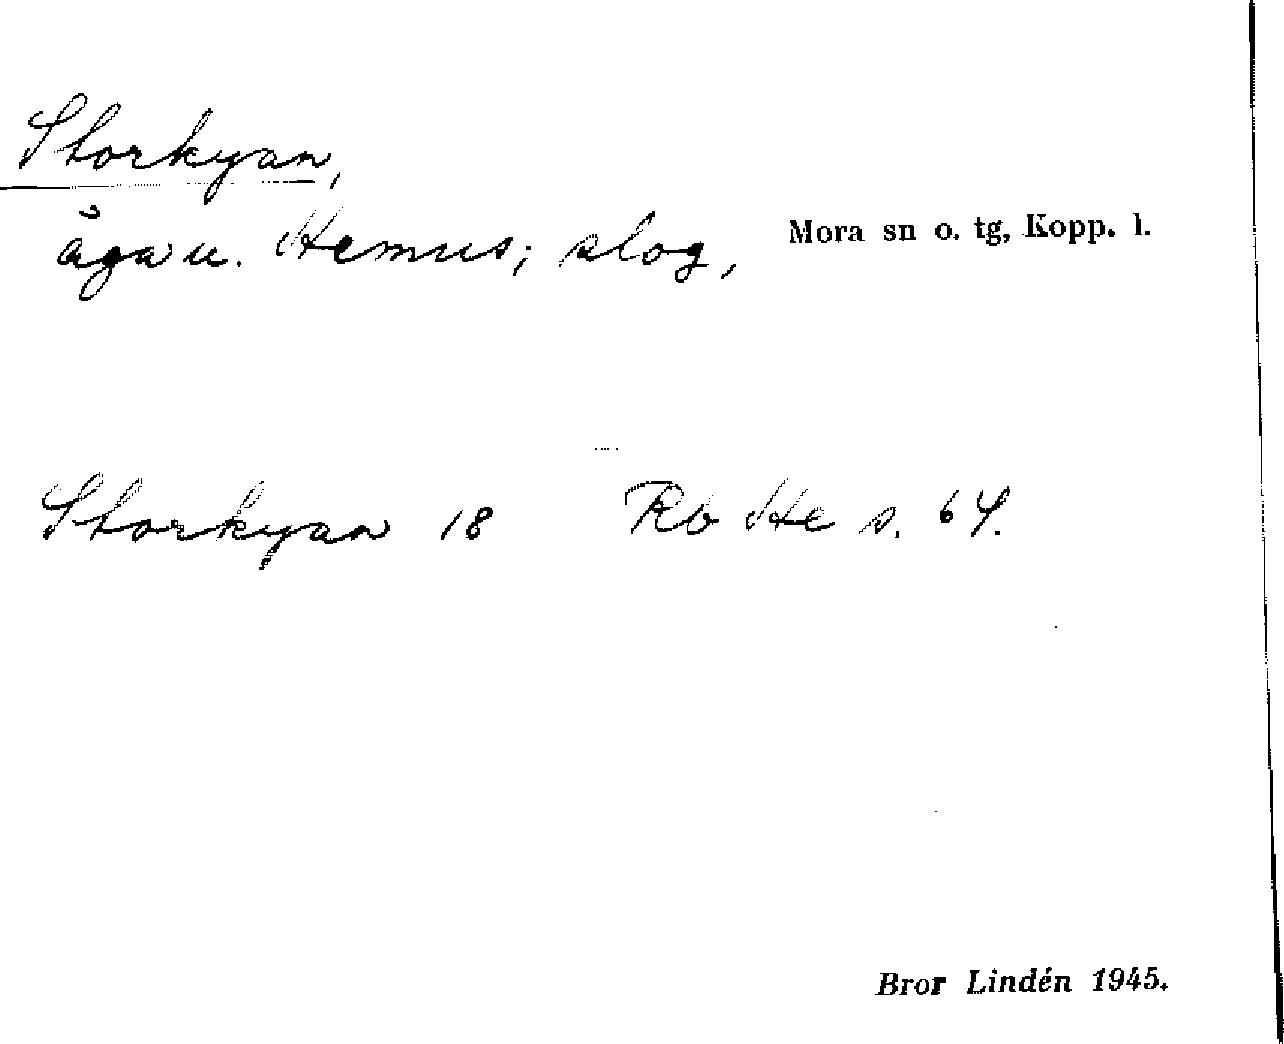 Storkyan,
äga u. Hemus; slog,
Mora sn o. tg, Kopp. l.
Storkyan 18 Rb He s. 64.
Bror Lindén 1945.